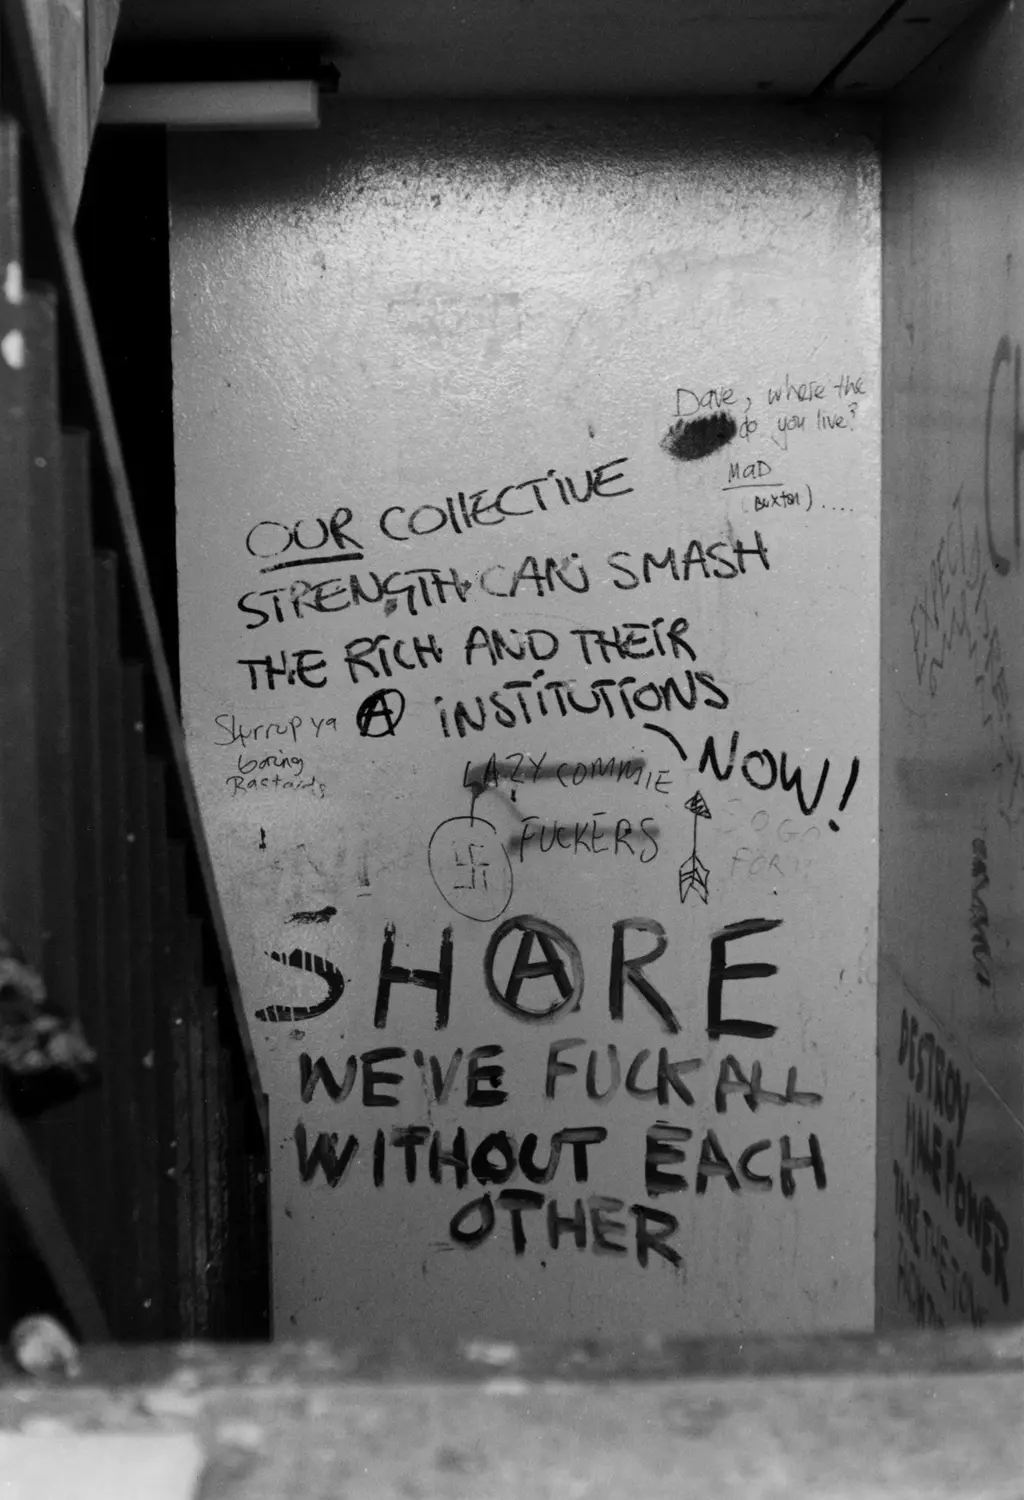 Dave, where the
do you live?
MaD
(Buxton)....
OUR COllECTiVE
STRENGTH CAN SMASH
THE RiCH AND THEiR
Ⓐ iNSTiTUTiONS
NOW!
Slurrup ya
boring
Bastards
LAZY COMMIE
FUCKERS
SHARE
WE'VE FUCK ALL
WITHOUT EACH
OTHER
DESTROY
POWER
TAKE THE